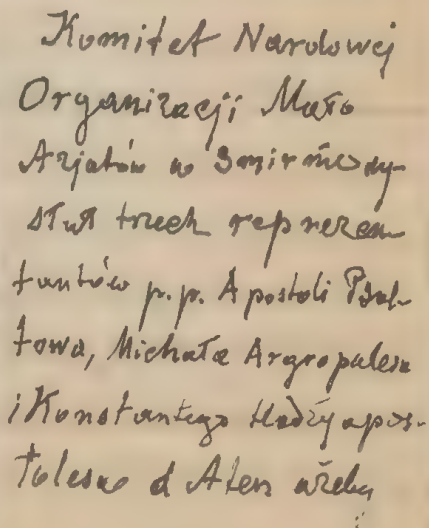 Komitet Narodowej
Organizacji Mało
Azjatów w Smirnie wy-
słał trzech reprezen
tantów p.p. Apostoli Psal-
towa, Michała Argropulesa
i Konstantego Hadżyapos-
tolesa d Aten ażeby